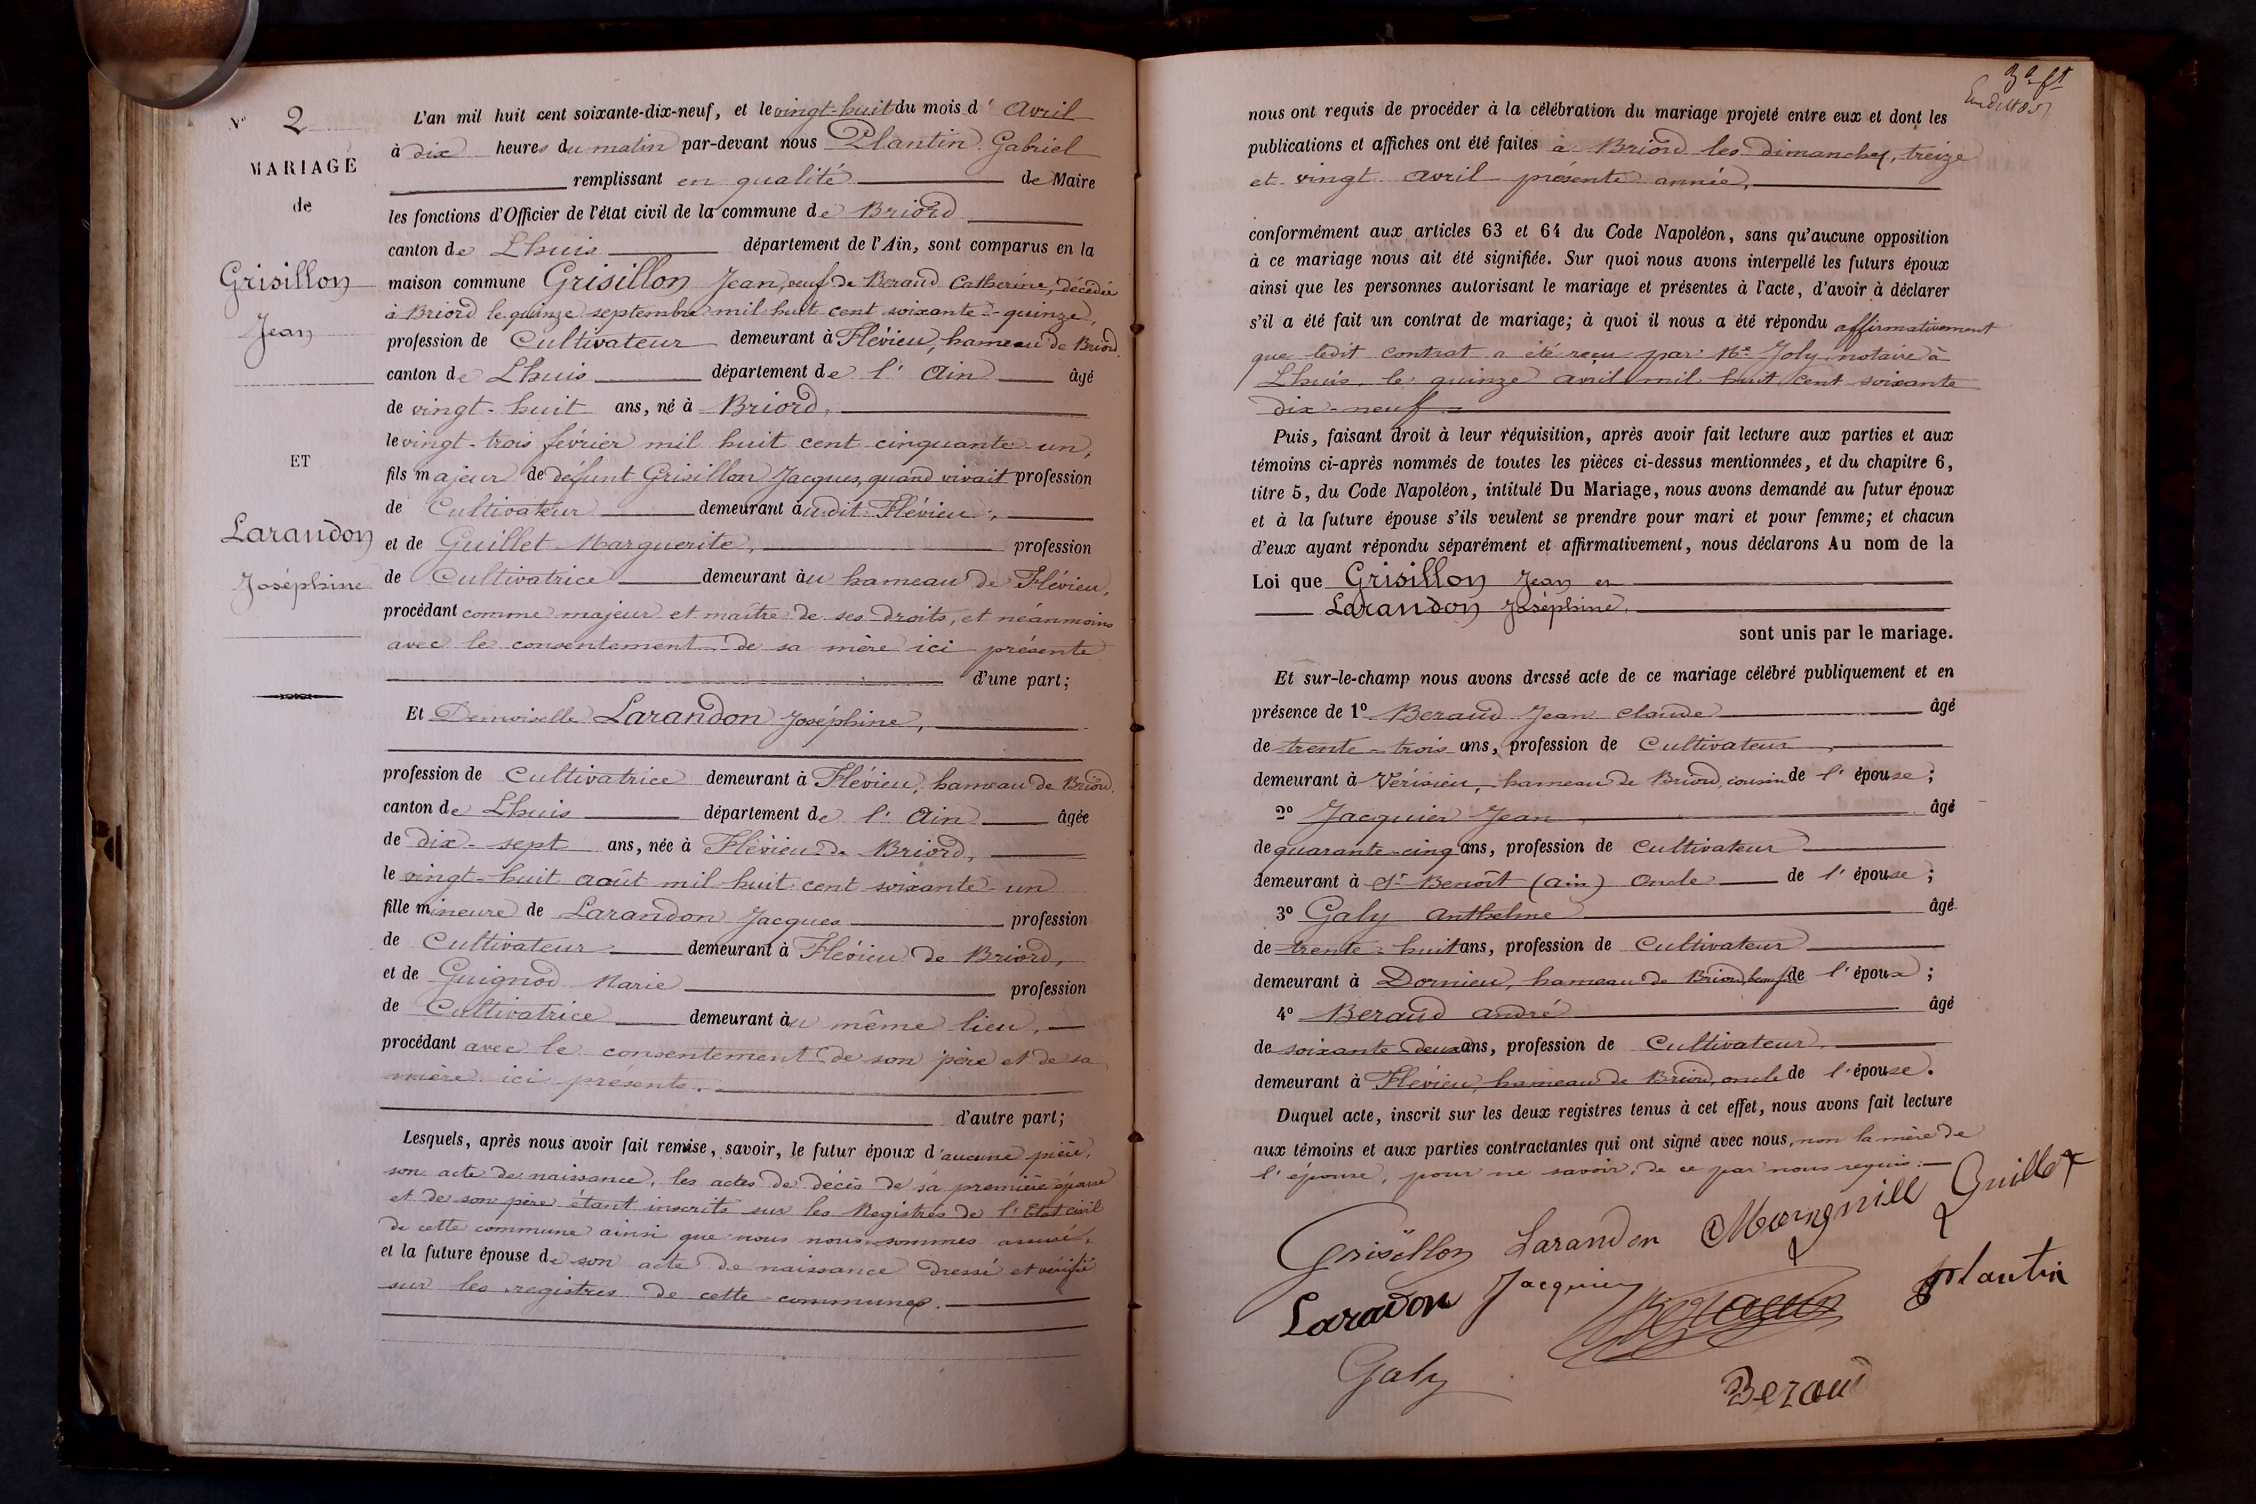 N° 2
MARIAGE
de
Grisillon
Jean
ET
Larandon
Joséphine
L'an mil huit cent soixante-dix-neuf, et le vingt-huit du mois d' Avril
à dix heures du matin par-devant nous Plantin Gabriel
remplissant en qualité de Maire
les fonctions d'Officier de l'état civil de la commune de Briord
canton de Lhuis département de l'Ain, sont comparus en la
maison commune Grisillon Jean, veuf de Beraud Catherine, décédée
à Briord le quinze septembre mil huit cent soixante-quinze,
profession de Cultivateur demeurant à Flévieu, hameau de Briord,
canton de Lhuis département de l' Ain âgé
de vingt-huit ans, né à Briord,
le vingt-trois février mil huit cent cinquante-un,
fils majeur de défunt Grisillon Jacques, quand vivait profession
de Cultivateur demeurant audit Flévieu,
et de Guillet Marguerite, profession
de Cultivatrice demeurant au hameau de Flévieu,
procédant comme majeur et maître de ses droits, et néanmoins
avec le consentement de sa mère ici présente
d'une part;
Et Demoiselle Larandon Joséphine,
profession de Cultivatrice demeurant à Flévieu, hameau de Briord,
canton de Lhuis département de l' Ain âgée
de dix-sept ans, née à Flévieu de Briord,
le vingt-huit août mil huit cent soixante-un
fille mineure de Larandon Jacques profession
de Cultivateur demeurant à Flévieu de Briord,
et de Guignod Marie profession
de Cultivatrice demeurant au même lieu,
procédant avec le consentement de son père et de sa
mère ici présents.
d'autre part;
Lesquels, après nous avoir fait remise, savoir, le futur époux d'aucune pièce,
son acte de naissance, les actes de décès de sa première épouse
et de son père étant inscrits sur les Registres de l'Etat civil
de cette commune ainsi que nous nous sommes assuré,
et la future épouse de son acte de naissance dressé et vérifié
sur les registres de cette commune.
nous ont requis de procéder à la célébration du mariage projeté entre eux et dont les
publications et affiches ont été faites à Briord les dimanches, treize
et vingt avril présente année,
conformément aux articles 63 et 64 du Code Napoléon, sans qu'aucune opposition
à ce mariage nous ait été signifiée. Sur quoi nous avons interpellé les futurs époux
ainsi que les personnes autorisant le mariage et présentes à l'acte, d'avoir à déclarer
s'il a été fait un contrat de mariage; à quoi il nous a été répondu affirmativement
que ledit contrat a été reçu par Me Joly notaire à
Lhuis, le quinze avril mil huit cent soixante
dix-neuf
Puis, faisant droit à leur réquisition, après avoir fait lecture aux parties et aux
témoins ci-après nommés de toutes les pièces ci-dessus mentionnées, et du chapitre 6,
titre 5, du Code Napoléon, intitulé Du Mariage, nous avons demandé au futur époux
et à la future épouse s'ils veulent se prendre pour mari et pour femme; et chacun
d'eux ayant répondu séparément et affirmativement, nous déclarons Au nom de la
Loi que Grisillon Jean et
Larandon Joséphine,
sont unis par le mariage.
Et sur-le-champ nous avons dressé acte de ce mariage célébré publiquement et en
présence de 1° Beraud Jean Claude âgé
de trente-trois ans, profession de Cultivateur
demeurant à Vérisieu, hameau de Briord, cousin de l' épouse;
2° Jacquier Jean âgé
de quarante-cinq ans, profession de Cultivateur
demeurant à St Benoît (Ain) Oncle de l' épouse;
3° Galy Anthelme âgé
de trente-huit ans, profession de Cultivateur
demeurant à Dornieu, hameau de Briord, de l' époux;
4° Beraud André âgé
de soixante deux ans, profession de Cultivateur
demeurant à Flévieu, hameau de Briord, oncle de l' épouse.
Duquel acte, inscrit sur les deux registres tenus à cet effet, nous avons fait lecture
aux témoins et aux parties contractantes qui ont signé avec nous, non la mère de
l'épouse, pour ne savoir, de ce par nous requis.
Grisillon Larandon Guillet
Laradon Jacquier Plantin
Galy Beraud